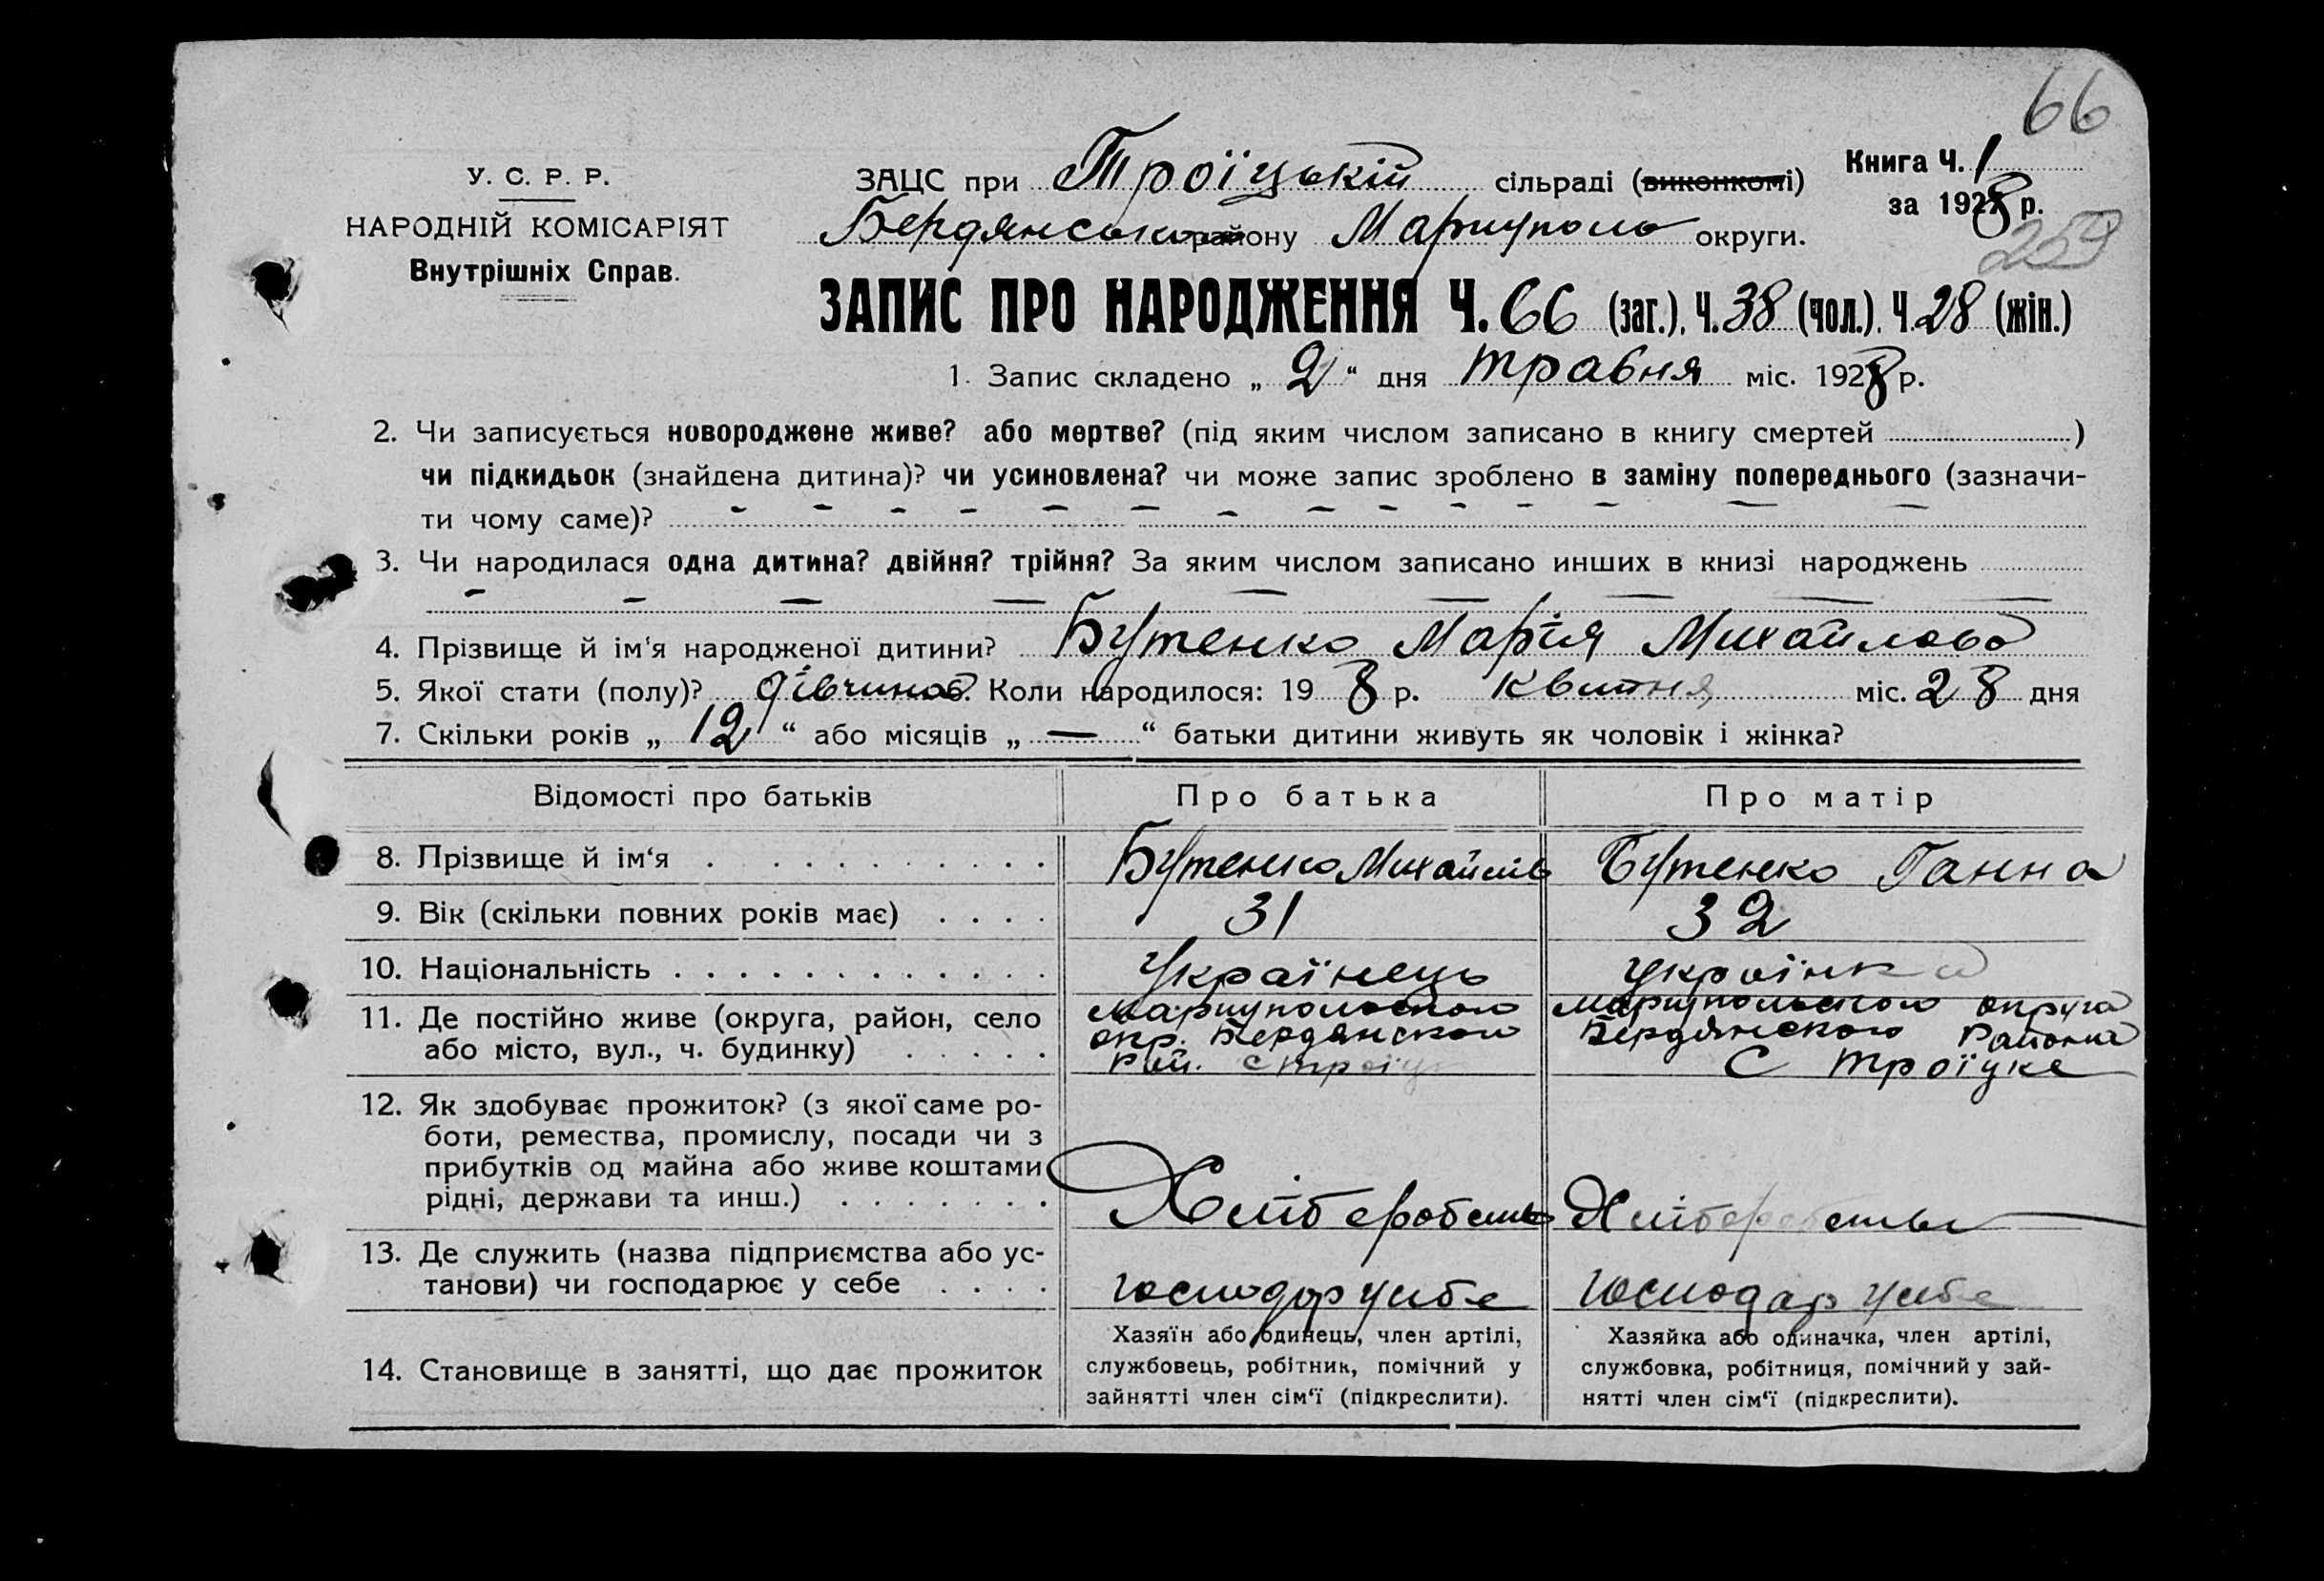 66
У. С. Р. Р.
НАРОДНІЙ КОМІСАРІЯТ
Внутрішніх Справ.
ЗАЦС при Троїцькій сільраді (виконкомі)
Книга Ч. 1
за 1928 р.
Бердянського району Маріуполь округи.
259
ЗАПИС ПРО НАРОДЖЕННЯ Ч. 66 (заг.). Ч. 38 (чол.). Ч. 28 (жін.)
1. Запис складено „ 2 “ дня травня міс. 1928 р.
2. Чи записується новороджене живе? або мертве? (під яким числом записано в книгу смертей )
чи підкидьок (знайдена дитина)? чи усиновлена? чи може запис зроблено в заміну попереднього (зазначи-
ти чому саме)? - - - - - - - - - - - - - -
3. Чи народилася одна дитина? двійня? трійня? За яким числом записано инших в книзі народжень
- - - - - - - - -
4. Прізвище й ім‘я народженої дитини? Бутенко Марія Михайлова
5. Якої стати (полу)? дівчина 6. Коли народилося: 19 8 р. квитня міс. 28 дня
7. Скільки років „ 12 “ або місяців „ — “ батьки дитини живуть як чоловік і жінка?
Відомості про батьків Про батька Про матір
8. Прізвище й ім‘я . . . . . . . . . . Бутенко Михайлів Бутенко Ганна
9. Вік (скільки повних років має) . . . . 31 32
10. Національність . . . . . . . . . . . . . Українець українка
11. Де постійно живе (округа, район, село
або місто, вул., ч. будинку) . . . . .
Мариупольского
окр. Бердянского
Рай. с Троїц
Мариупольского округа
Бердянского Района
С Троїцке
12. Як здобуває прожиток? (з якої саме ро-
боти, ремества, промислу, посади чи з
прибутків од майна або живе коштами
рідні, держави та инш.) . . . . . . .
Хлібероб
Хлібероб
13. Де служить (назва підприємства або ус-
танови) чи господарює у себе . . . .
господар усебе
господар усебе
14. Становище в занятті, що дає прожиток
Хазяїн або одинець, член артілі,
службовець, робітник, помічний у
зайнятті член сім‘ї (підкреслити).
Хазяйка або одиначка, член артілі,
службовка, робітниця, помічний у зай-
нятті член сім‘ї (підкреслити).